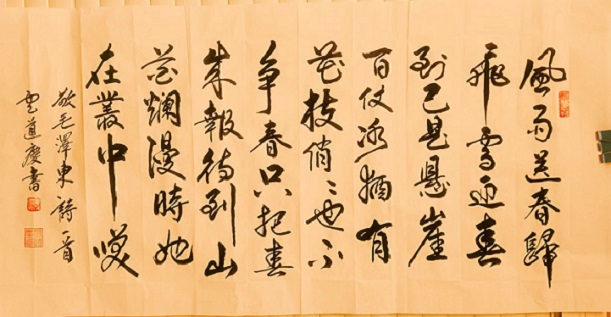 風雨送春歸
飛雪迎春
到已是懸崖
百仗冰猶有
花枝俏〻也不
争春只把春
来報待到山
花爛漫時她
在叢中咲
敬毛澤東詩一首
道慶書